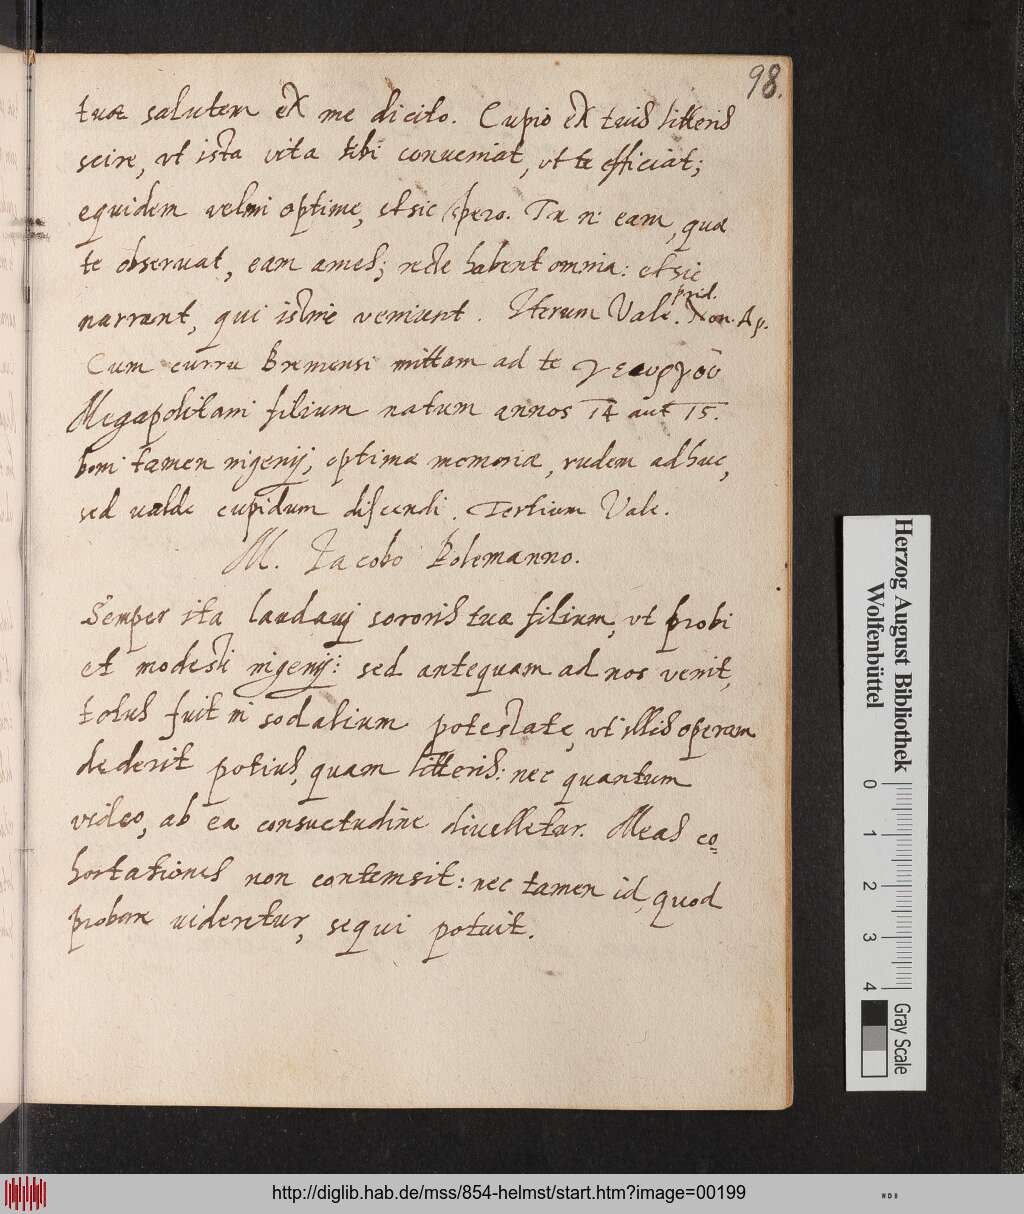 98.
tuæ salutem ex me dicito. Cupio ex tuis litteris
scire, vt ista vita tibi conveniat, vt te efficiat;
equidem velim optime, et sic spero. Tu n: eam, quæ
te observat, eam ames; recte habent omnia: et sic
narrant, qui istinc veniunt. Iterum Vale. prid. Non. Ap.
Cum curru Bremensi mittam ad te γεωργοῦ
Megapolitani filium natum annos 14 aut 15.
boni tamen ingenij, optimæ memoriæ, rudem adhuc,
sed valde cupidum discendi. Tertium Vale.
M. Iacobo Bolemanno.
Semper ita laudavj sororis tuæ filium, vt probi
et modesti ingenij: sed antequam ad nos venit,
totus fuit in sodalium potestate, vt illis operam
dederit potius, quam litteris: nec quantum
video, ab ea consuetudine divelletur. Meas co=
hortationes non contemsit: nec tamen id, quod
probare videretur, sequi potuit.
Herzog August Bibliothek
Wolfenbüttel
0 1 2 3 4
Gray Scale
http://diglib.hab.de/mss/854-helmst/start.htm?image=00199